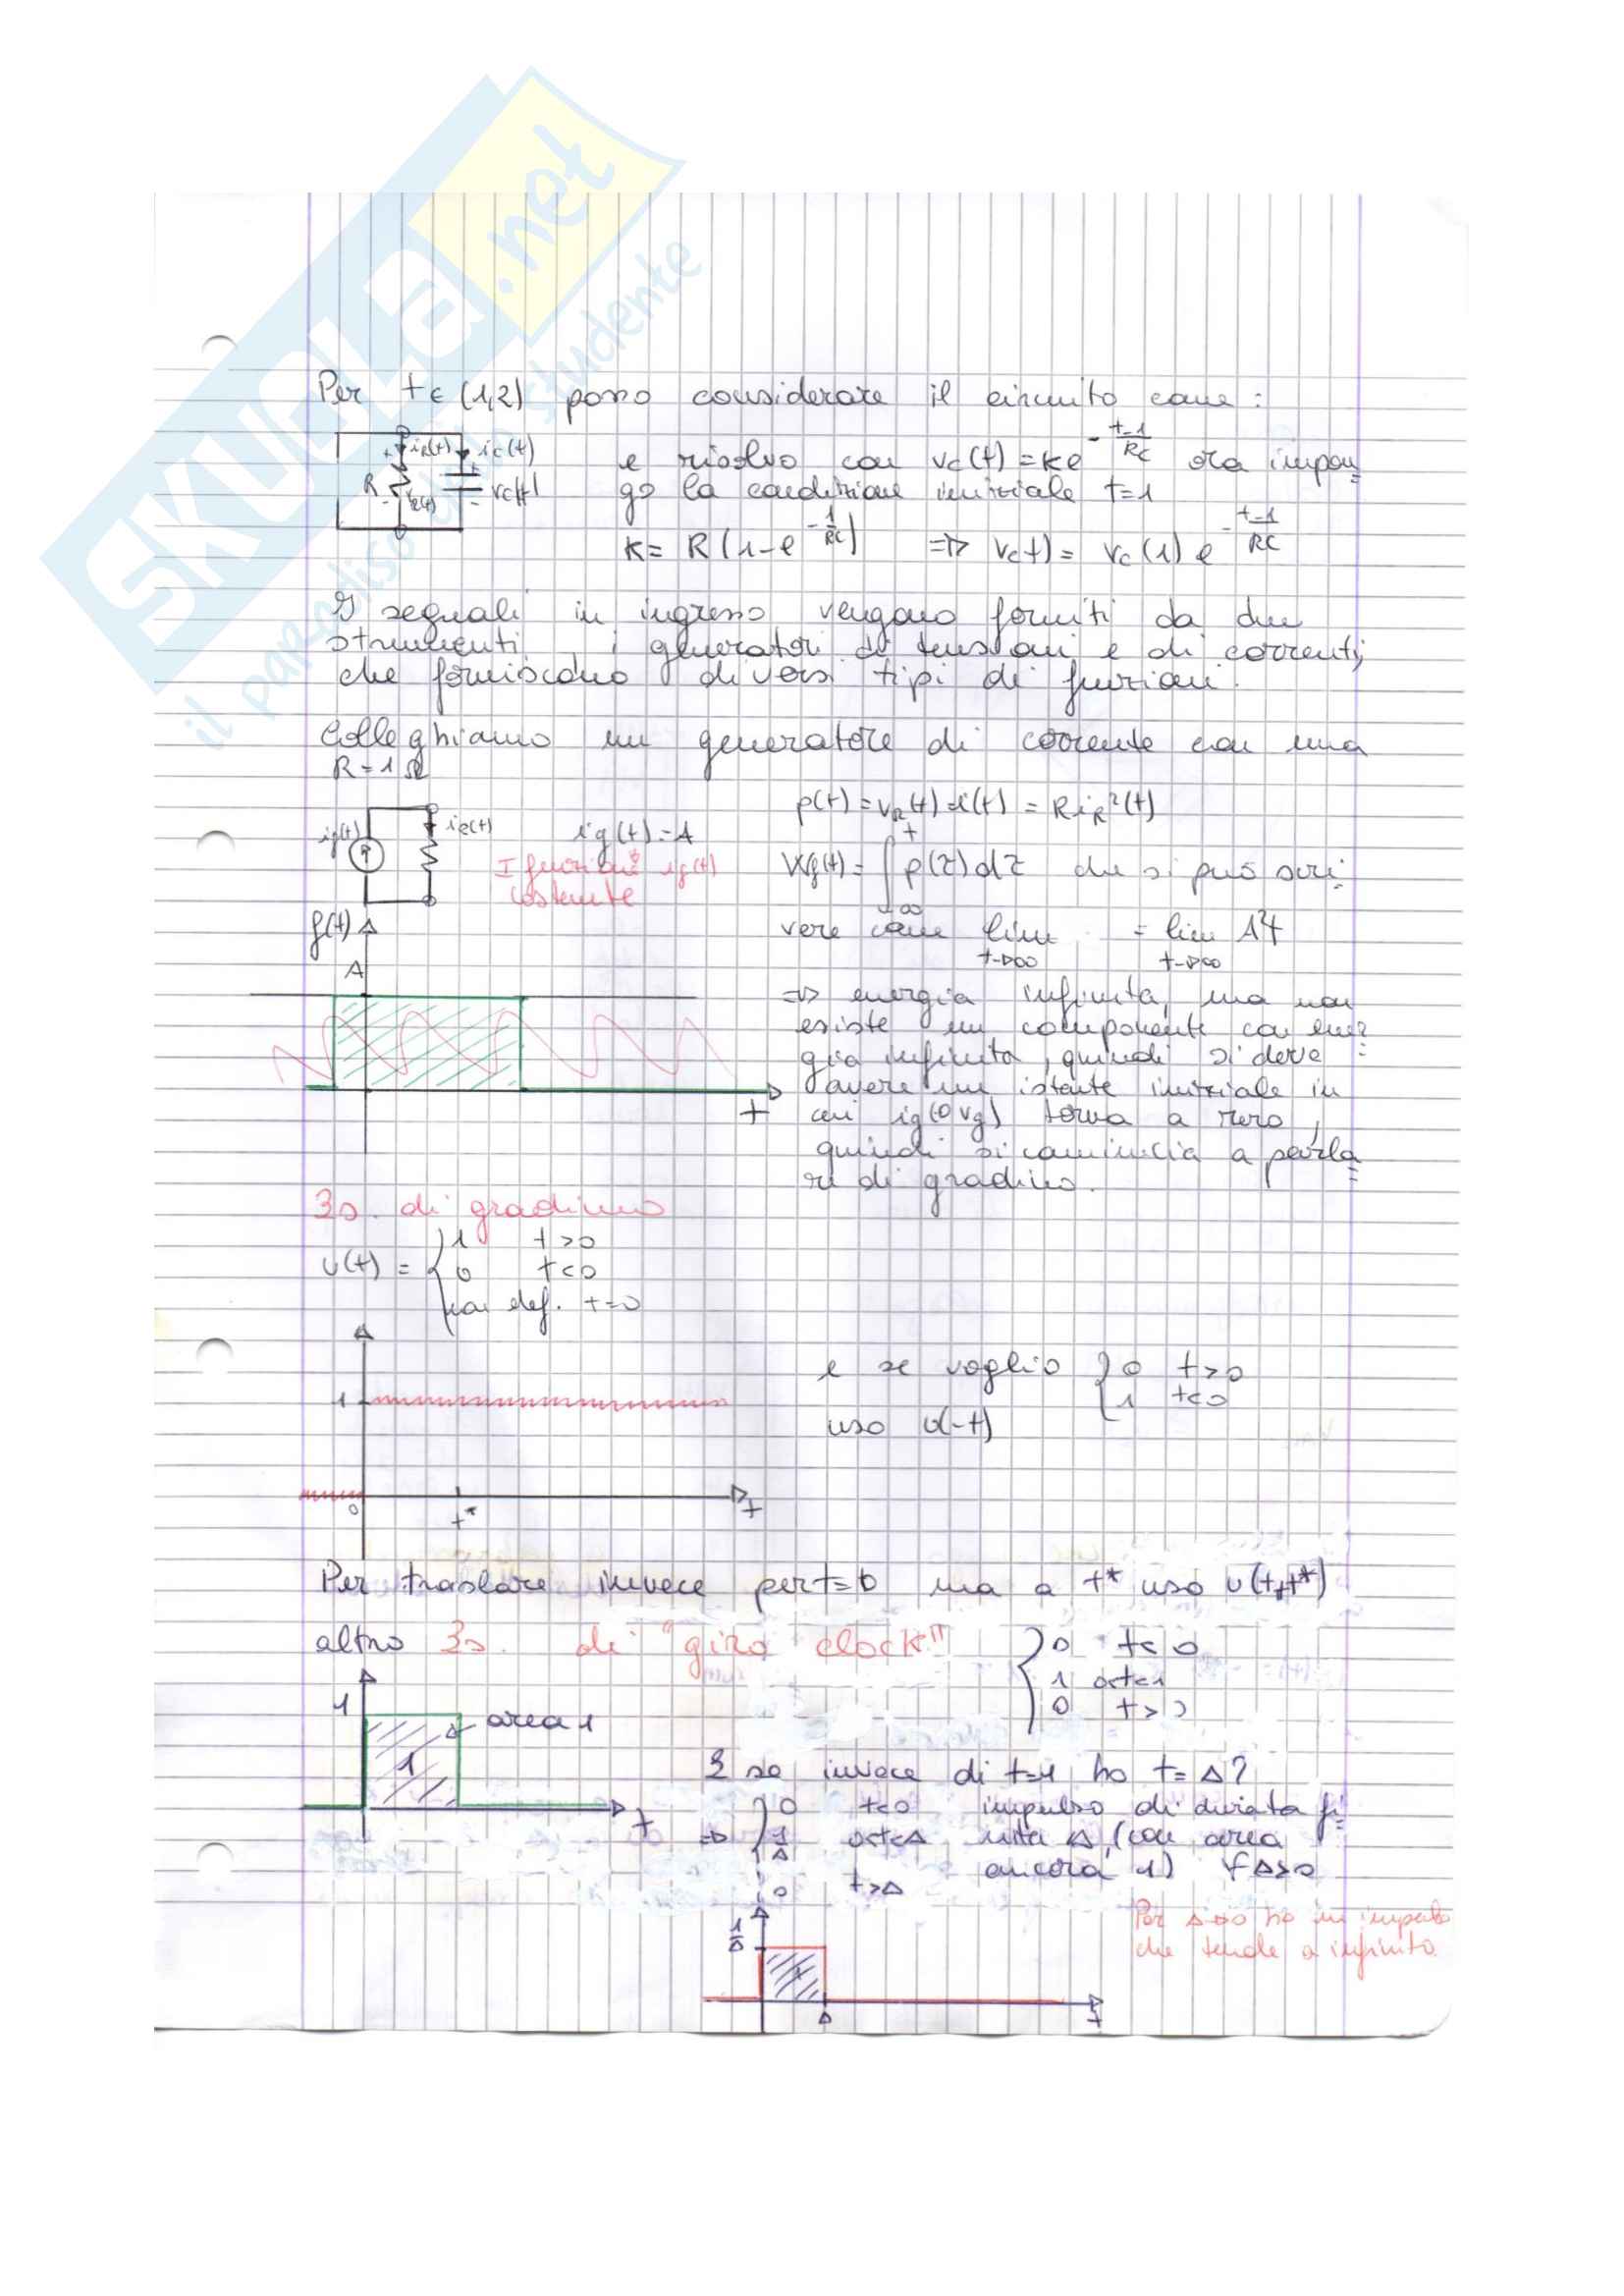 SKUOLA.net
il paradiso dello studente
Per t ∈ (1,2) posso considerare il circuito come :
iR(t) iC(t)
R vR(t) vC(t)
e risolvo con vC(t) = k e^(-(t-1)/RC) ora impon=
go la condizione iniziale t=1
K = R (1-e^(-1/RC)) => vC t) = vC (1) e^(-(t-1)/RC)
I segnali in ingresso vengono forniti da due
strumenti i generatori di tensioni e di correnti,
che forniscono diversi tipi di funzioni.
Colleghiamo un generatore di corrente con una
R = 1 Ω
ig(t) iR(t) ig(t) = A
I funzione ig(t)
costante
p(t) = vR(t) i(t) = R iR²(t)
Wg(t) = ∫_{-∞}^{t} p(τ) dτ che si può scri=
vere come lim t→∞ = lim t→∞ A²t
f(t)
A
t
=> energia infinita, ma non
esiste un componente con ener=
gia infinita, quindi si deve
avere un istante iniziale in
cui ig (o vg) torna a zero,
quindi si comincia a parla=
re di gradino.
di gradino
u(t) = { 1 t>0
0 t<0
non def. t=0
1
0 t* t
e se voglio { 0 t>0
1 t<0
uso u(-t)
Per traslare invece per t=0 ma a t* uso u(t+t*)
altro di "giro clock"
{ 0 t<0
1 0<t<1
0 t>
1
1
area 1
t
E se invece di t=1 ho t=Δ?
=> { 0 t<0 impulso di durata fi=
1/Δ 0<t<Δ nita Δ (con area
ancora 1) ∀Δ>0
0 t>Δ
1/Δ
1
Δ
t
Per Δ→0 ho un impulso
che tende a infinito